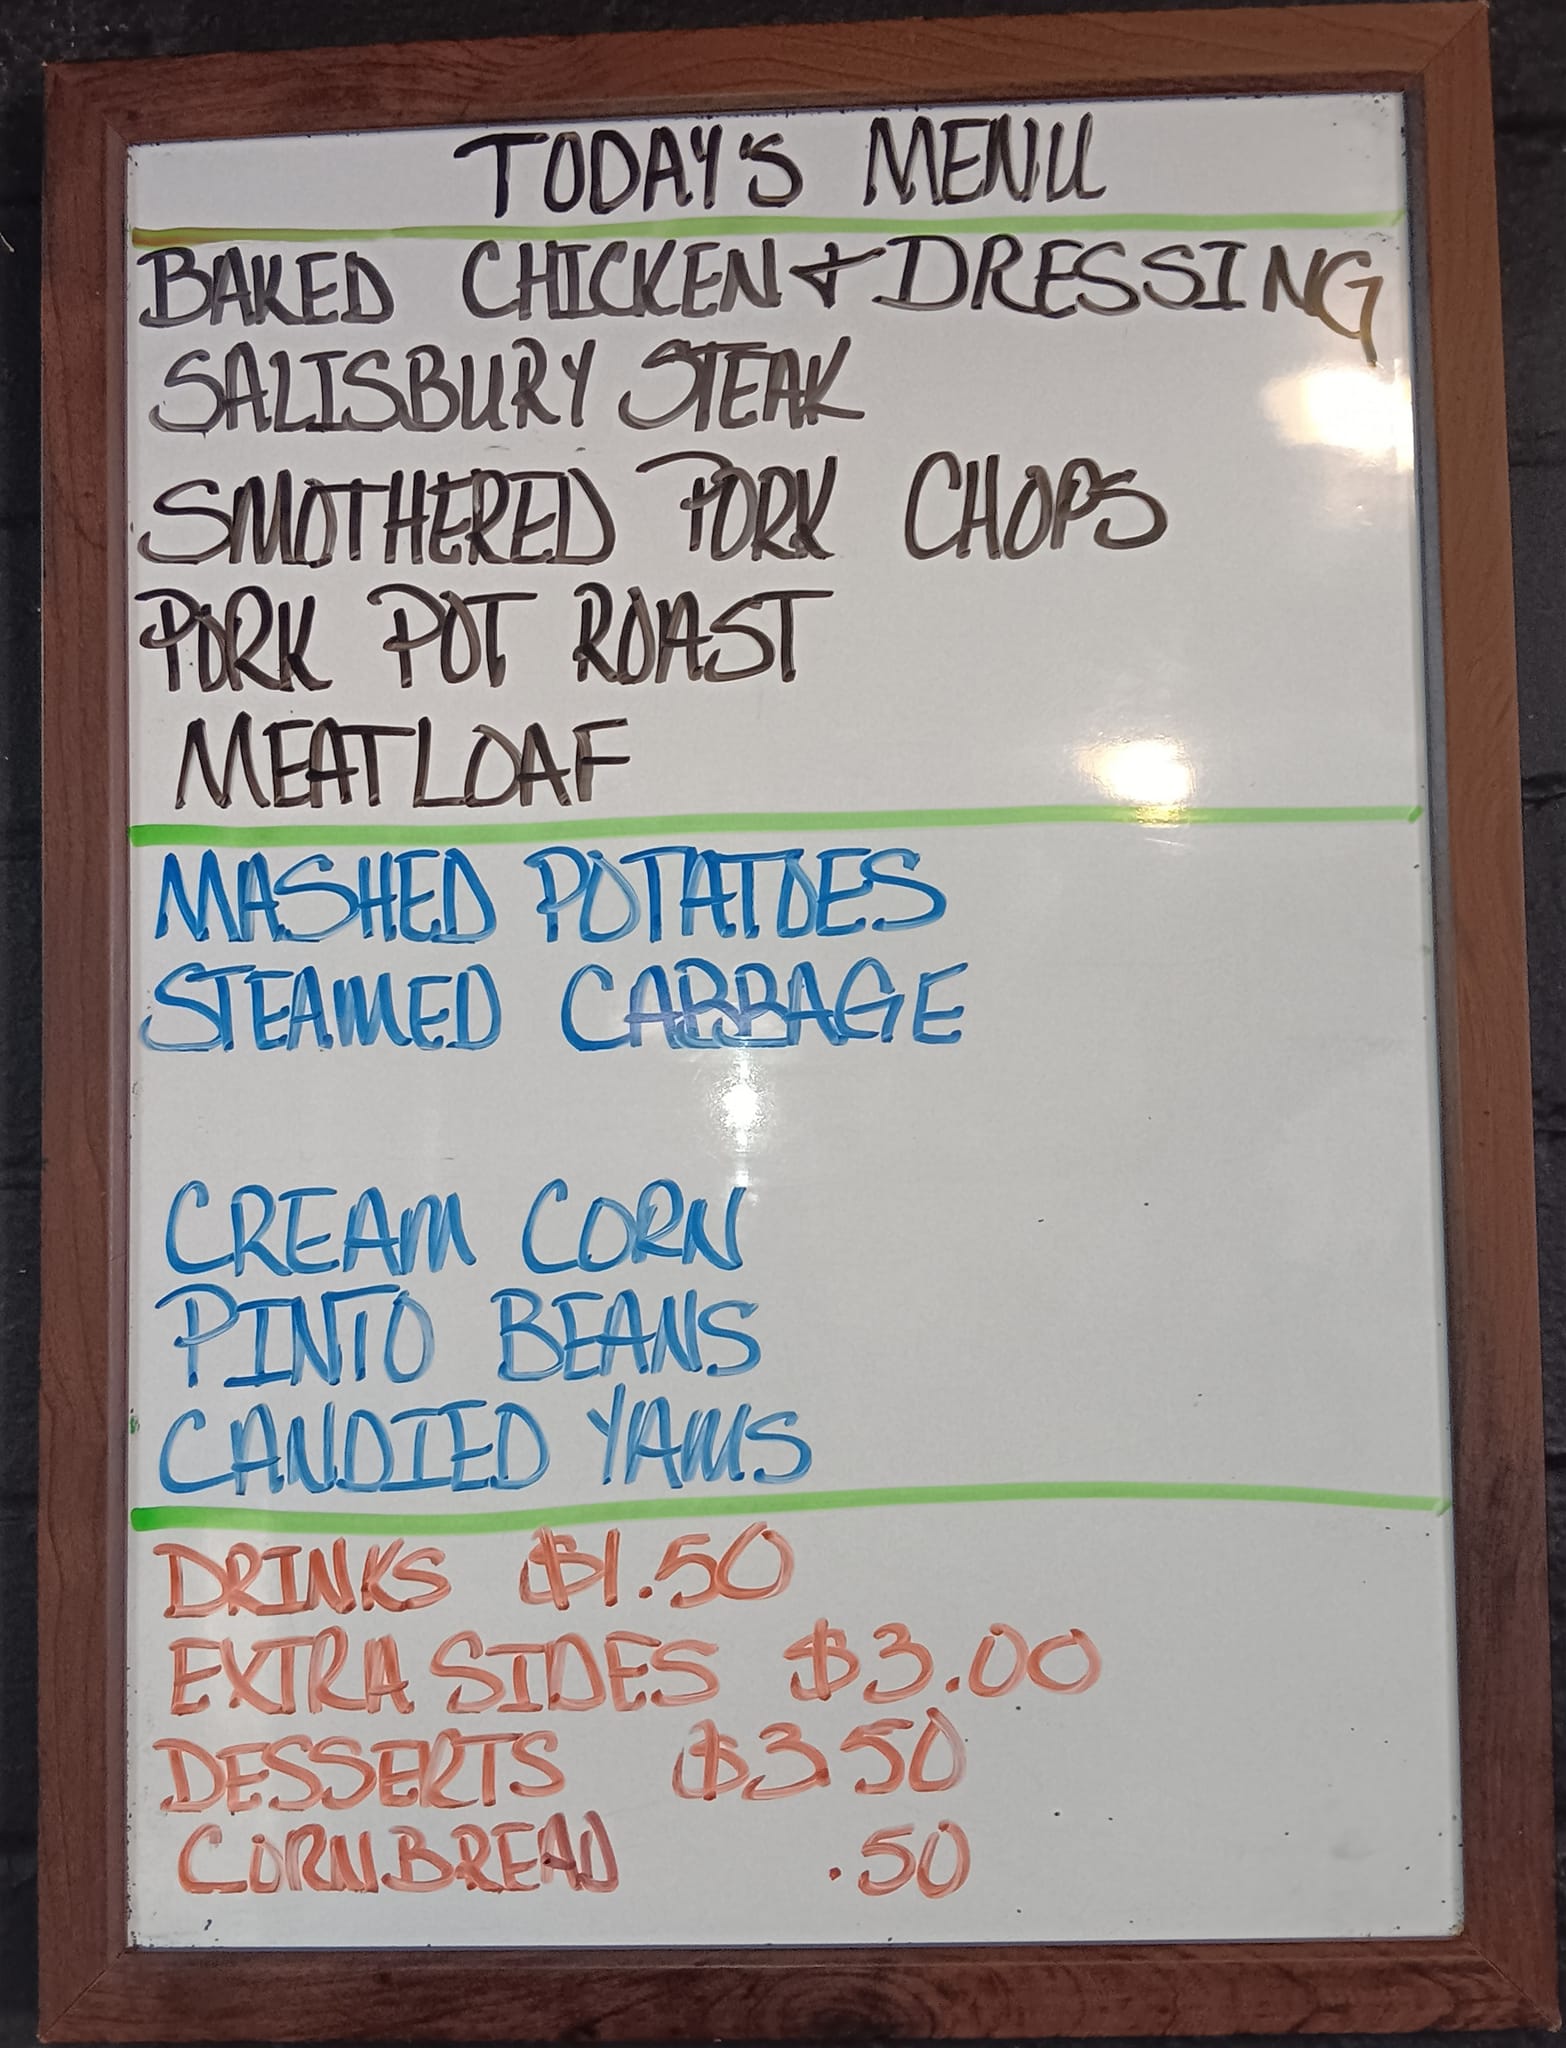 TODAY'S MENU
BAKED CHICKEN & DRESSING
SALISBURY STEAK
SMOTHERED PORK CHOPS
PORK POT ROAST
MEATLOAF
MASHED POTATOES
STEAMED CABBAGE
CREAM CORN
PINTO BEANS
CANDIED YAMS
DRINKS $1.50
EXTRA SIDES $3.00
DESSERTS $3.50
CORNBREAD .50